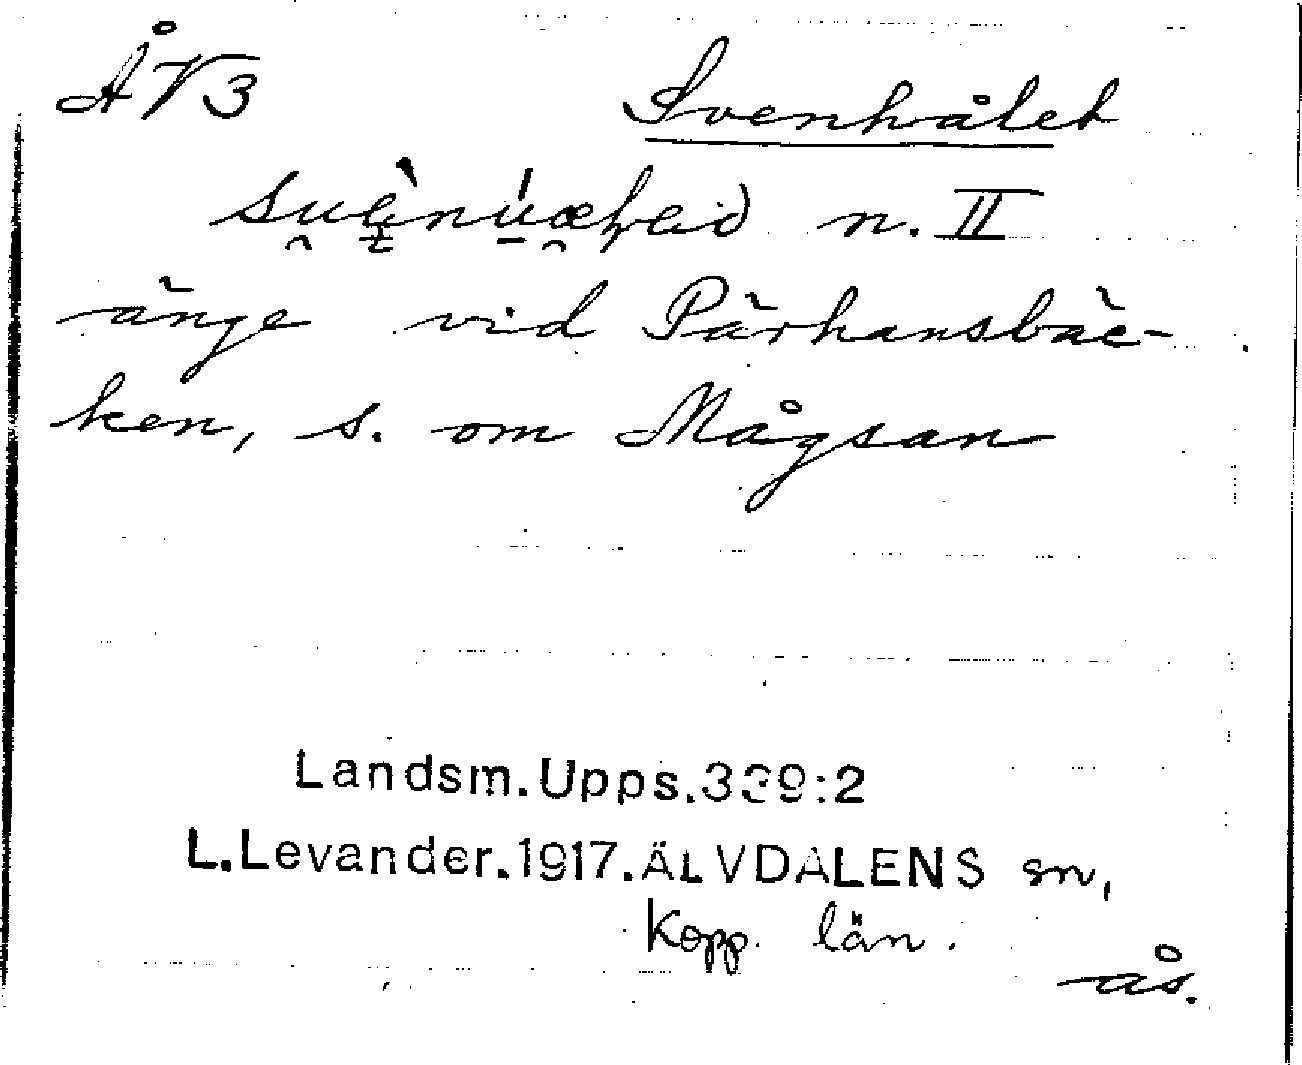 ÅV3 Svenhålet
n. II
änge vid Pärhansbäc-
ken, s. om Mågsan
Landsm. Upps. 339:2
L. Levander. 1917. ÄLVDALENS sn,
Kopp. län.
ås.